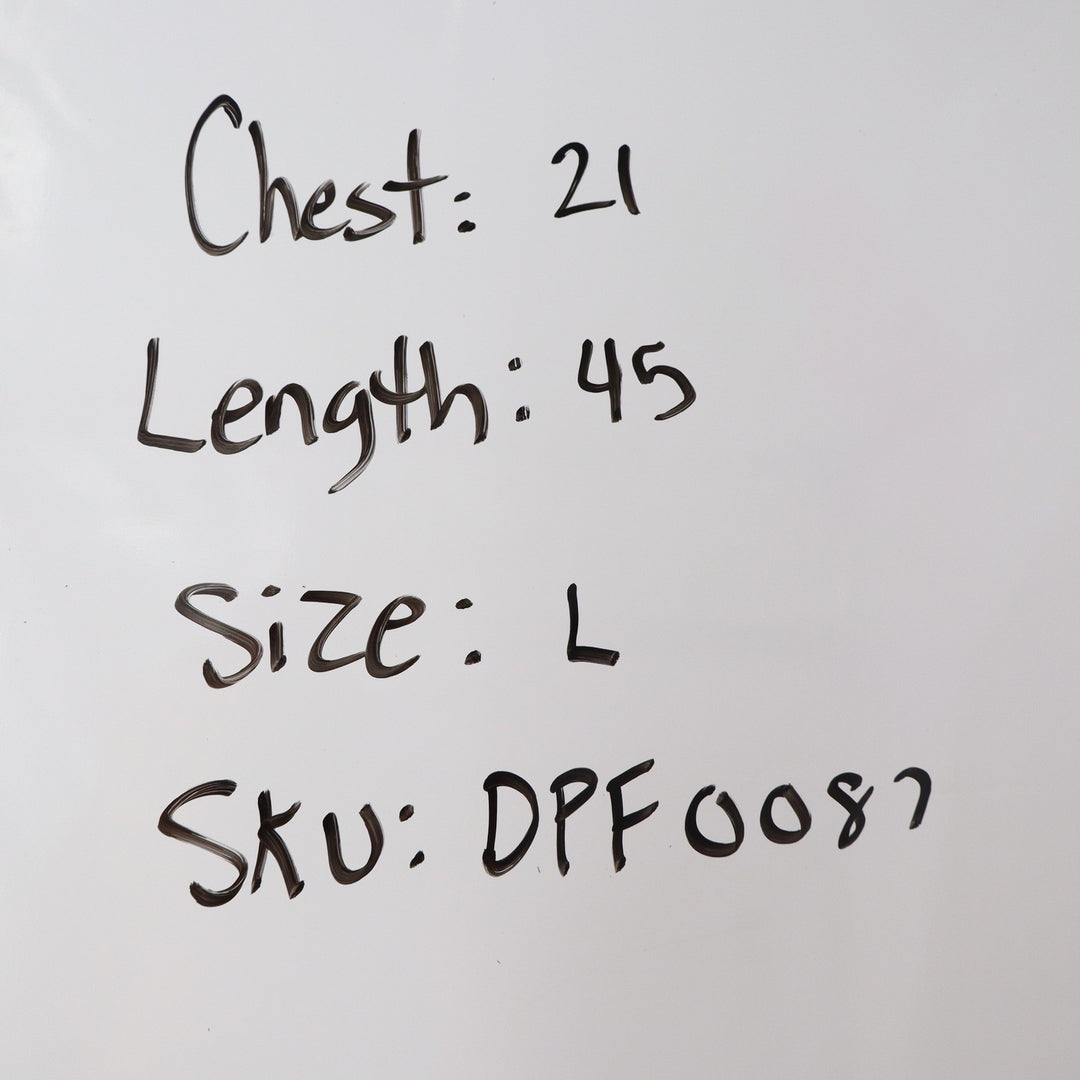 Chest: 21
Length: 45
Size: L
SKU: DPF0087